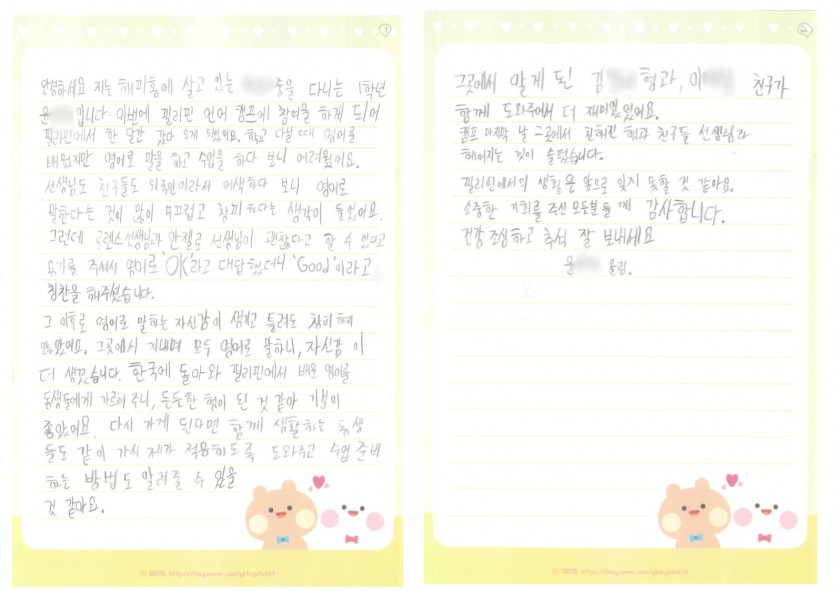 ①
안녕하세요 저는 해피홈에 살고 있는 중을 다니는 1학년
윤 입니다. 이번에 필리핀 언어 캠프에 참여를 하게 되어
필리핀에서 한 달간 갔다 오게 되었어요. 학교 다닐 때 영어를
배웠지만 영어로 말을 하고 수업을 하다 보니 어려웠어요.
선생님도 친구들도 외국인이라서 어색하다 보니 영어로
말한다는 것이 많이 부끄럽고 창피 하다는 생각이 들었어요.
그런데 로렌스 선생님과 안젤로 선생님이 괜찮다고 할 수 있다고
용기를 주셔서 영어로 'OK'라고 대답했더니 'Good'이라고
칭찬을 해주셨습니다.
그 이후로 영어로 말하는 자신감이 생기고 틀려도 창피 하지
않았어요. 그곳에서 지내며 모두 영어로 말하니, 자신감 이
더 생겼습니다. 한국에 돌아와 필리핀에서 배운 영어를
동생들에게 가르쳐 주니, 든든한 형이 된 것 같아 기분이
좋았어요. 다시 가게 된다면 함께 생활하는 동생
들도 같이 가서 제가 적응하도록 도와주고 수업 준비
하는 방법도 알려줄 수 있을
것 같아요.
https://blog.naver.com/
②
그곳에서 알게 된 김 형과, 이 친구가
함께 도와주어서 더 재미있었어요.
캠프 마지막 날 그곳에서 친해진 형과 친구들 선생님과
헤어지는 것이 슬펐습니다.
필리핀에서의 생활은 앞으로 잊지 못할 것 같아요.
소중한 기회를 주신 모든분들께 감사합니다.
건강 조심하고 추석 잘 보내세요
윤 올림.
https://blog.naver.com/